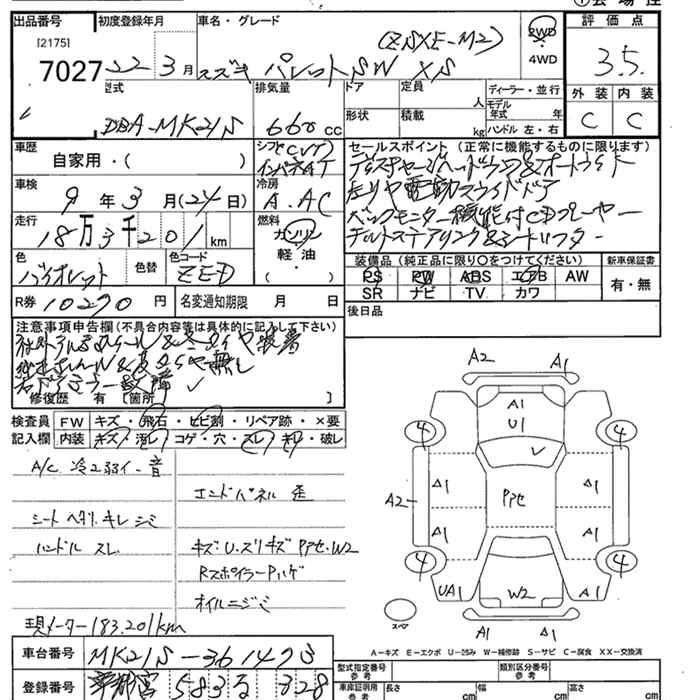 出品番号 初度登録年月 車名・グレード 評価点
[2175]
7027 22 3月 スズキ パレットSW XS (ZSXE-M2) 2WD 3.5
4WD
型式 排気量 ドア 定員 人 ディーラー・並行 外装 内装
DBA-MK21S 660 cc 形状 積載 kg モデル年式 年 C C
ハンドル 左・右
車歴 シフト(CVT) セールスポイント (正常に機能するものに限ります)
自家用・( ) インパネAT ディスチャージヘッドランプ&オートライト
車検 冷房 左リヤ電動スライドドア
9年3月(24日) A.AC バックモニター機能付CDプレーヤー
走行 燃料 チルトステアリング&シートリフター
18万3千201km ガソリン
軽油・
( )
色 色替 色コード 装備品 (純正品に限り○をつけてください) 新車保証書
バイオレット ZED PS PW ABS エアB AW 有・無
SR ナビ TV カワ
R券 10290円 名変通知期限 月 日 後日品
注意事項申告欄(不具合内容等は具体的に記入して下さい)
社外アルミホイール&冬タイヤ装着
修復歴 有 [箇所 ]
検査員 FW キズ・飛石・ヒビ割・リペア跡・×要
記入欄 内装 キズ・汚レ・コゲ・穴・スレ・キレ・破レ
A/C 冷エ弱イ・音
エンドパネル 歪
シート ヘタリ キレ シミ
ハンドル スレ キズ・U・スリキズ Pアセ・W2
Rスポイラー Pハゲ
オイルニジミ
現メーター 183.201km
A2 A1
A1
U1
4 4
A2 A1 Pアセ A1
A1 A1
4 4
UA1 W2 A1
スペア A1 A1
A-キズ E-エクボ U-凹み W-補修跡 S-サビ C-腐食 XX-交換済
車台番号 MK21S-361473
型式指定番号 参考 類別区分番号 参考
登録番号 宇都宮 583 る 328
車庫証明用 参考 長さ cm 幅 cm 高さ cm